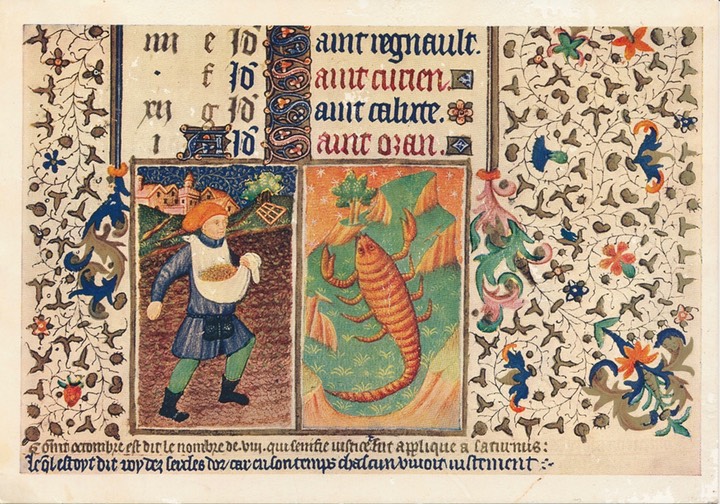 iiii e Id Saint regnault.
. f Id Saint curien.
xii g Id Saint calixte.
i A Id Saint ozan.
octombre est dit le nombre de viii. qui senifie iustice fut applique a saturnus:
Le ql estoyt dit roy dez secles dor/ car en son temps chascun viuoit iustement :-